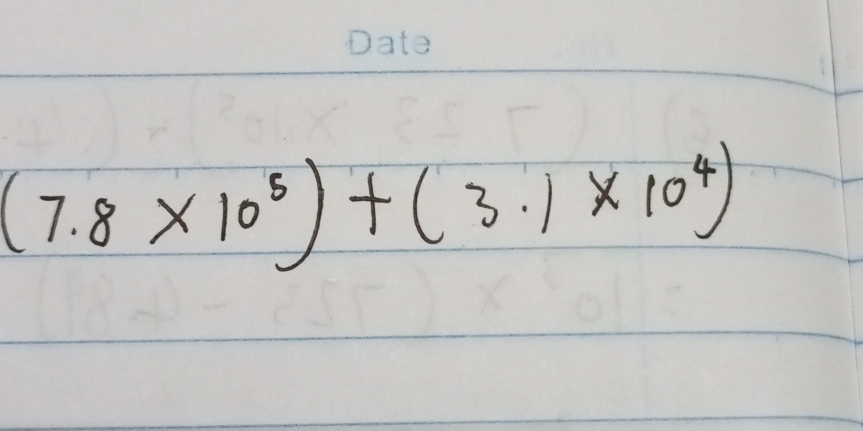 Date
(7.8 × 10⁵) + (3.1 × 10⁴)